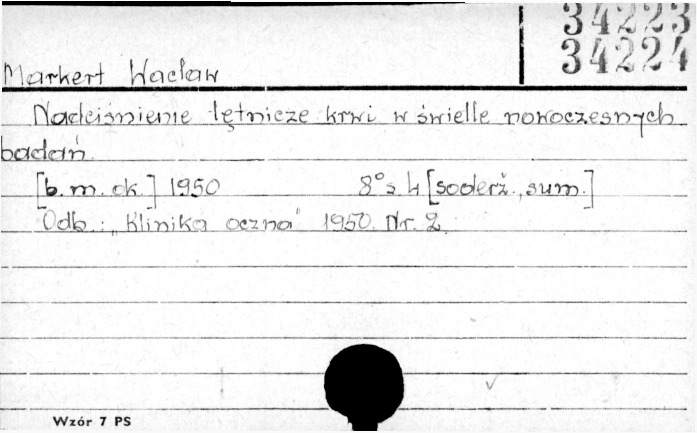 34223
34224
Markert Wacław
Nadciśnienie tętnicze krwi w świetle nowoczesnych
badań.
[b. m. ok.] 1950 8° s. 4 [soderž., sum.]
Odb.: „Klinika oczna" 1950. Nr. 2.
Wzór 7 PS